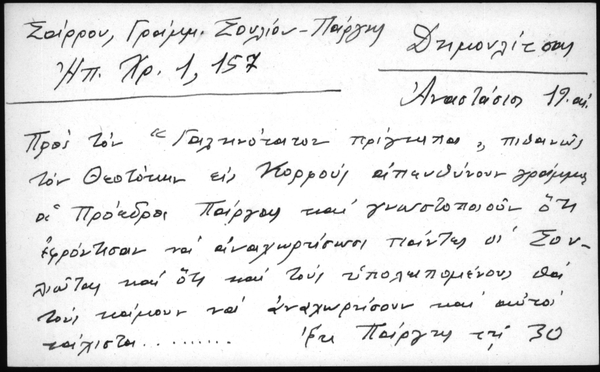 Σάρρου, Γράμμ. Σουλίου-Πάργης
Δημουλίτσας
Ἠπ. Χρ. 1, 157
Ἀναστάσιος 19. αἰ.
Πρὸς τὸν "Γαληνότατον πρίγκιπα", πιθανῶς
τὸν Θεοτόκην εἰς Κορφοὺς ἀπευθύνουν γράμμα
οἱ Πρόεδροι Πάργας καὶ γνωστοποιοῦν ὅτι
ἐφρόντησαν νὰ ἀναχωρήσωσι πάντες οἱ Σου-
λιῶται καὶ ὅτι καὶ τοὺς ὑπολειπομένους θὰ
τοὺς κάμουν νὰ ἀναχωρήσουν καὶ αὐτοὶ
τάχιστα .......... Ἐκ Πάργης τῇ 30